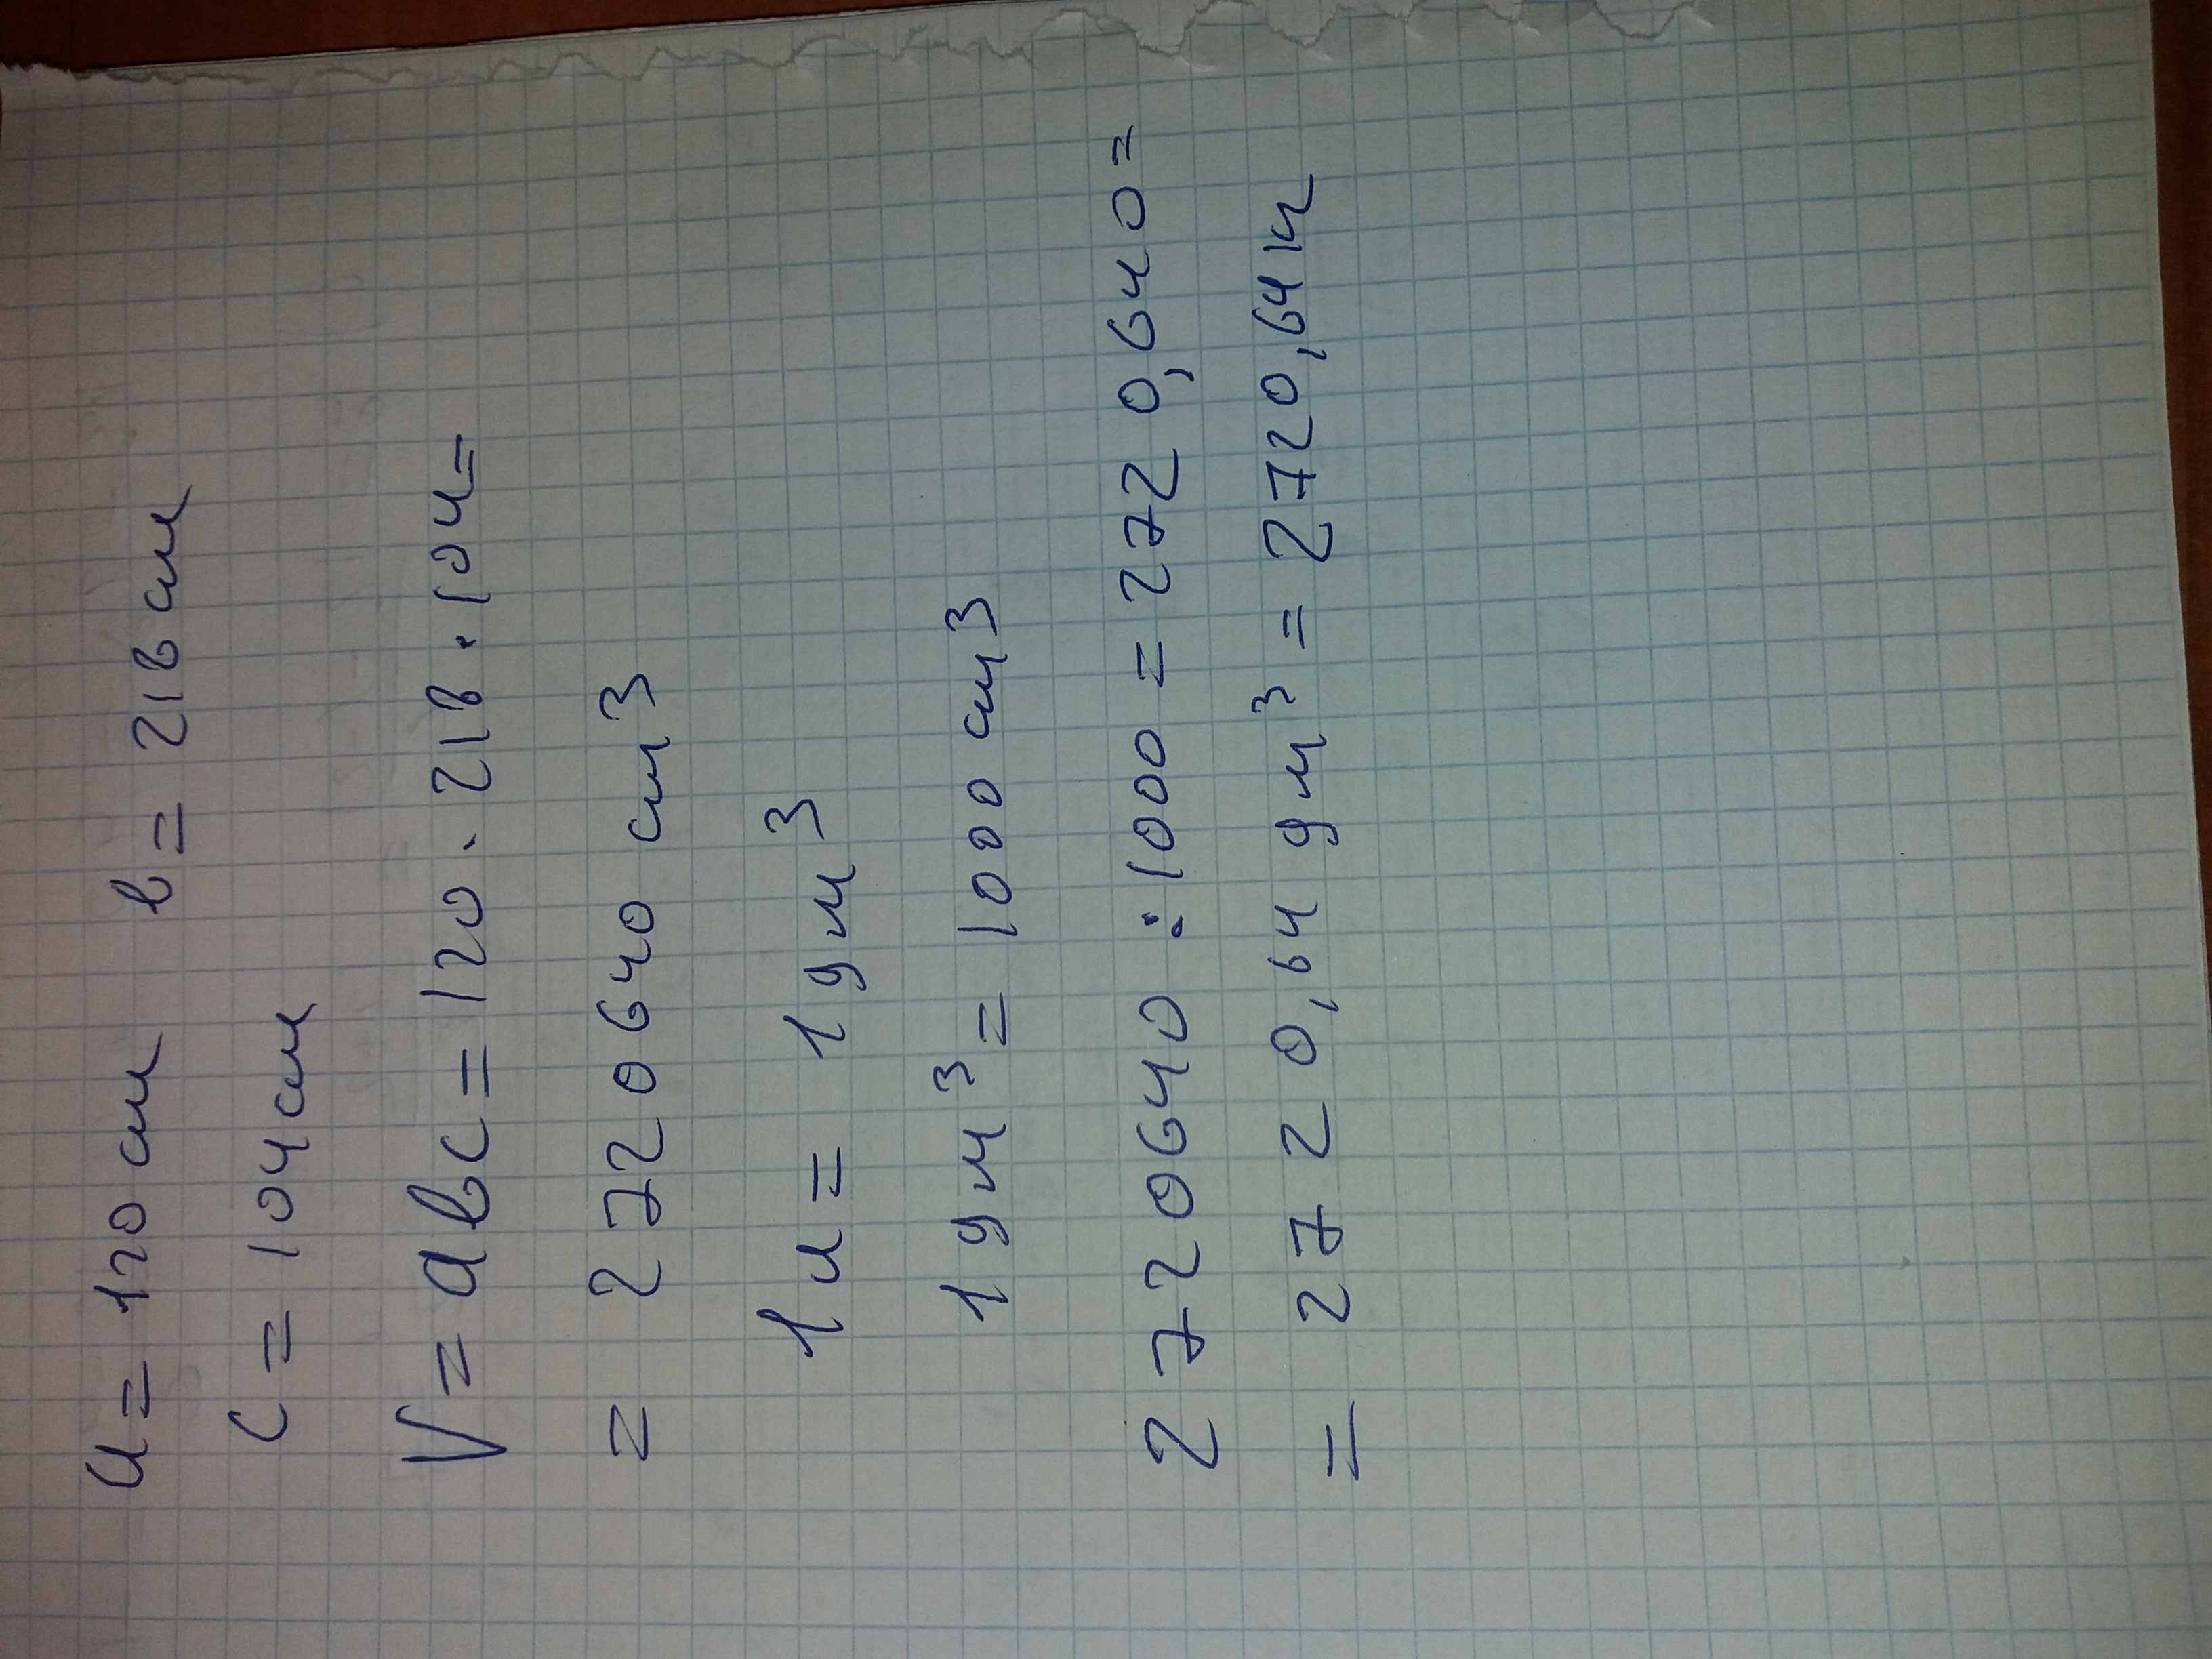 a = 120 см в = 218 см
c = 104 см
V = abc = 120 · 218 · 104 =
= 2720640 см3
1л = 1дм3
1 дм³ = 1000 см3
2720640 ÷ 1000 = 2720,640 =
= 2720,64 дм³ = 2720,64л